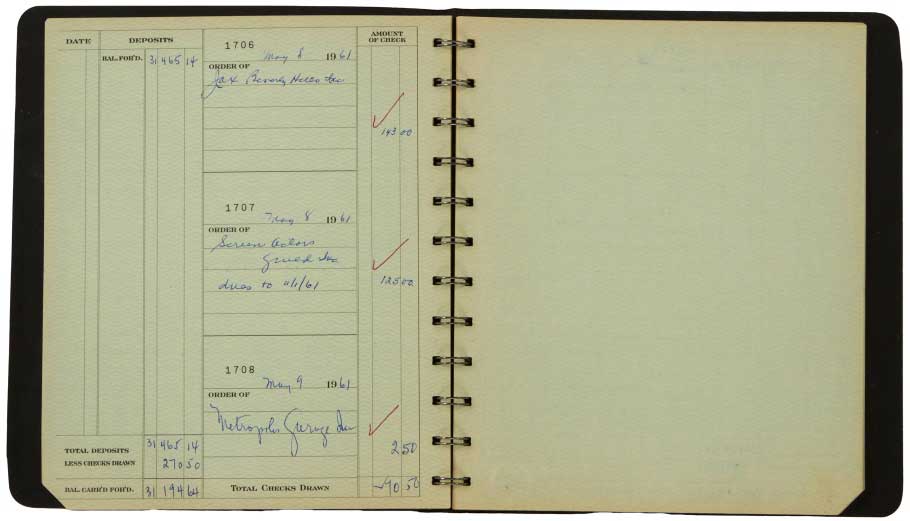 DATE DEPOSITS AMOUNT OF CHECK
BAL. FOR'D. 31 465 14
1706
May 8 1961
ORDER OF
Jax Beverly Hills Inc
143 00
1707
May 8 1961
ORDER OF
Screen Actors
Guild Inc
dues to 11/1/61
125 00
1708
May 9 1961
ORDER OF
Metropolis Garage Inc
2 50
TOTAL DEPOSITS 31 465 14
LESS CHECKS DRAWN 270 50
BAL. CARR'D FOR'D. 31 194 64
TOTAL CHECKS DRAWN 50